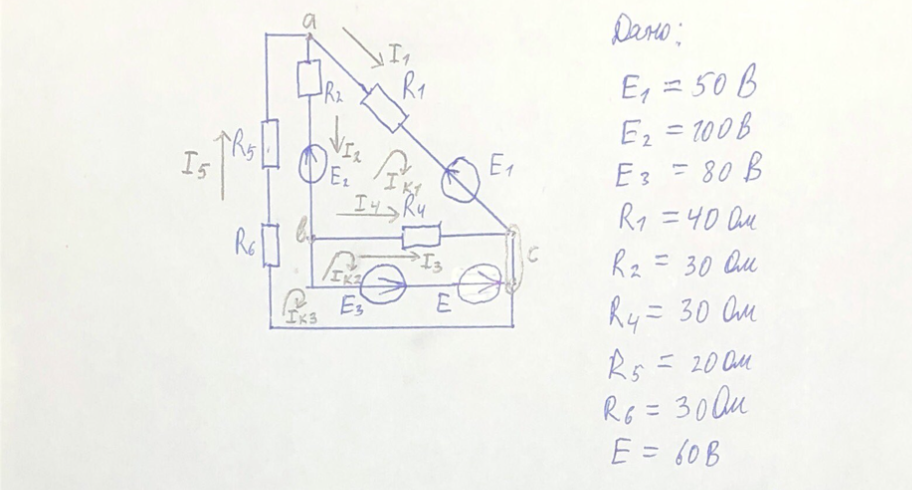 a
I1
R1
R2
I2
E2
R5
I5
E1
Iк1
I4
R4
R6
b
c
Iк2
I3
Iк3
E3
E
Дано:
E1 = 50 В
E2 = 100 В
E3 = 80 В
R1 = 40 Ом
R2 = 30 Ом
R4 = 30 Ом
R5 = 20 Ом
R6 = 30 Ом
E = 60 В